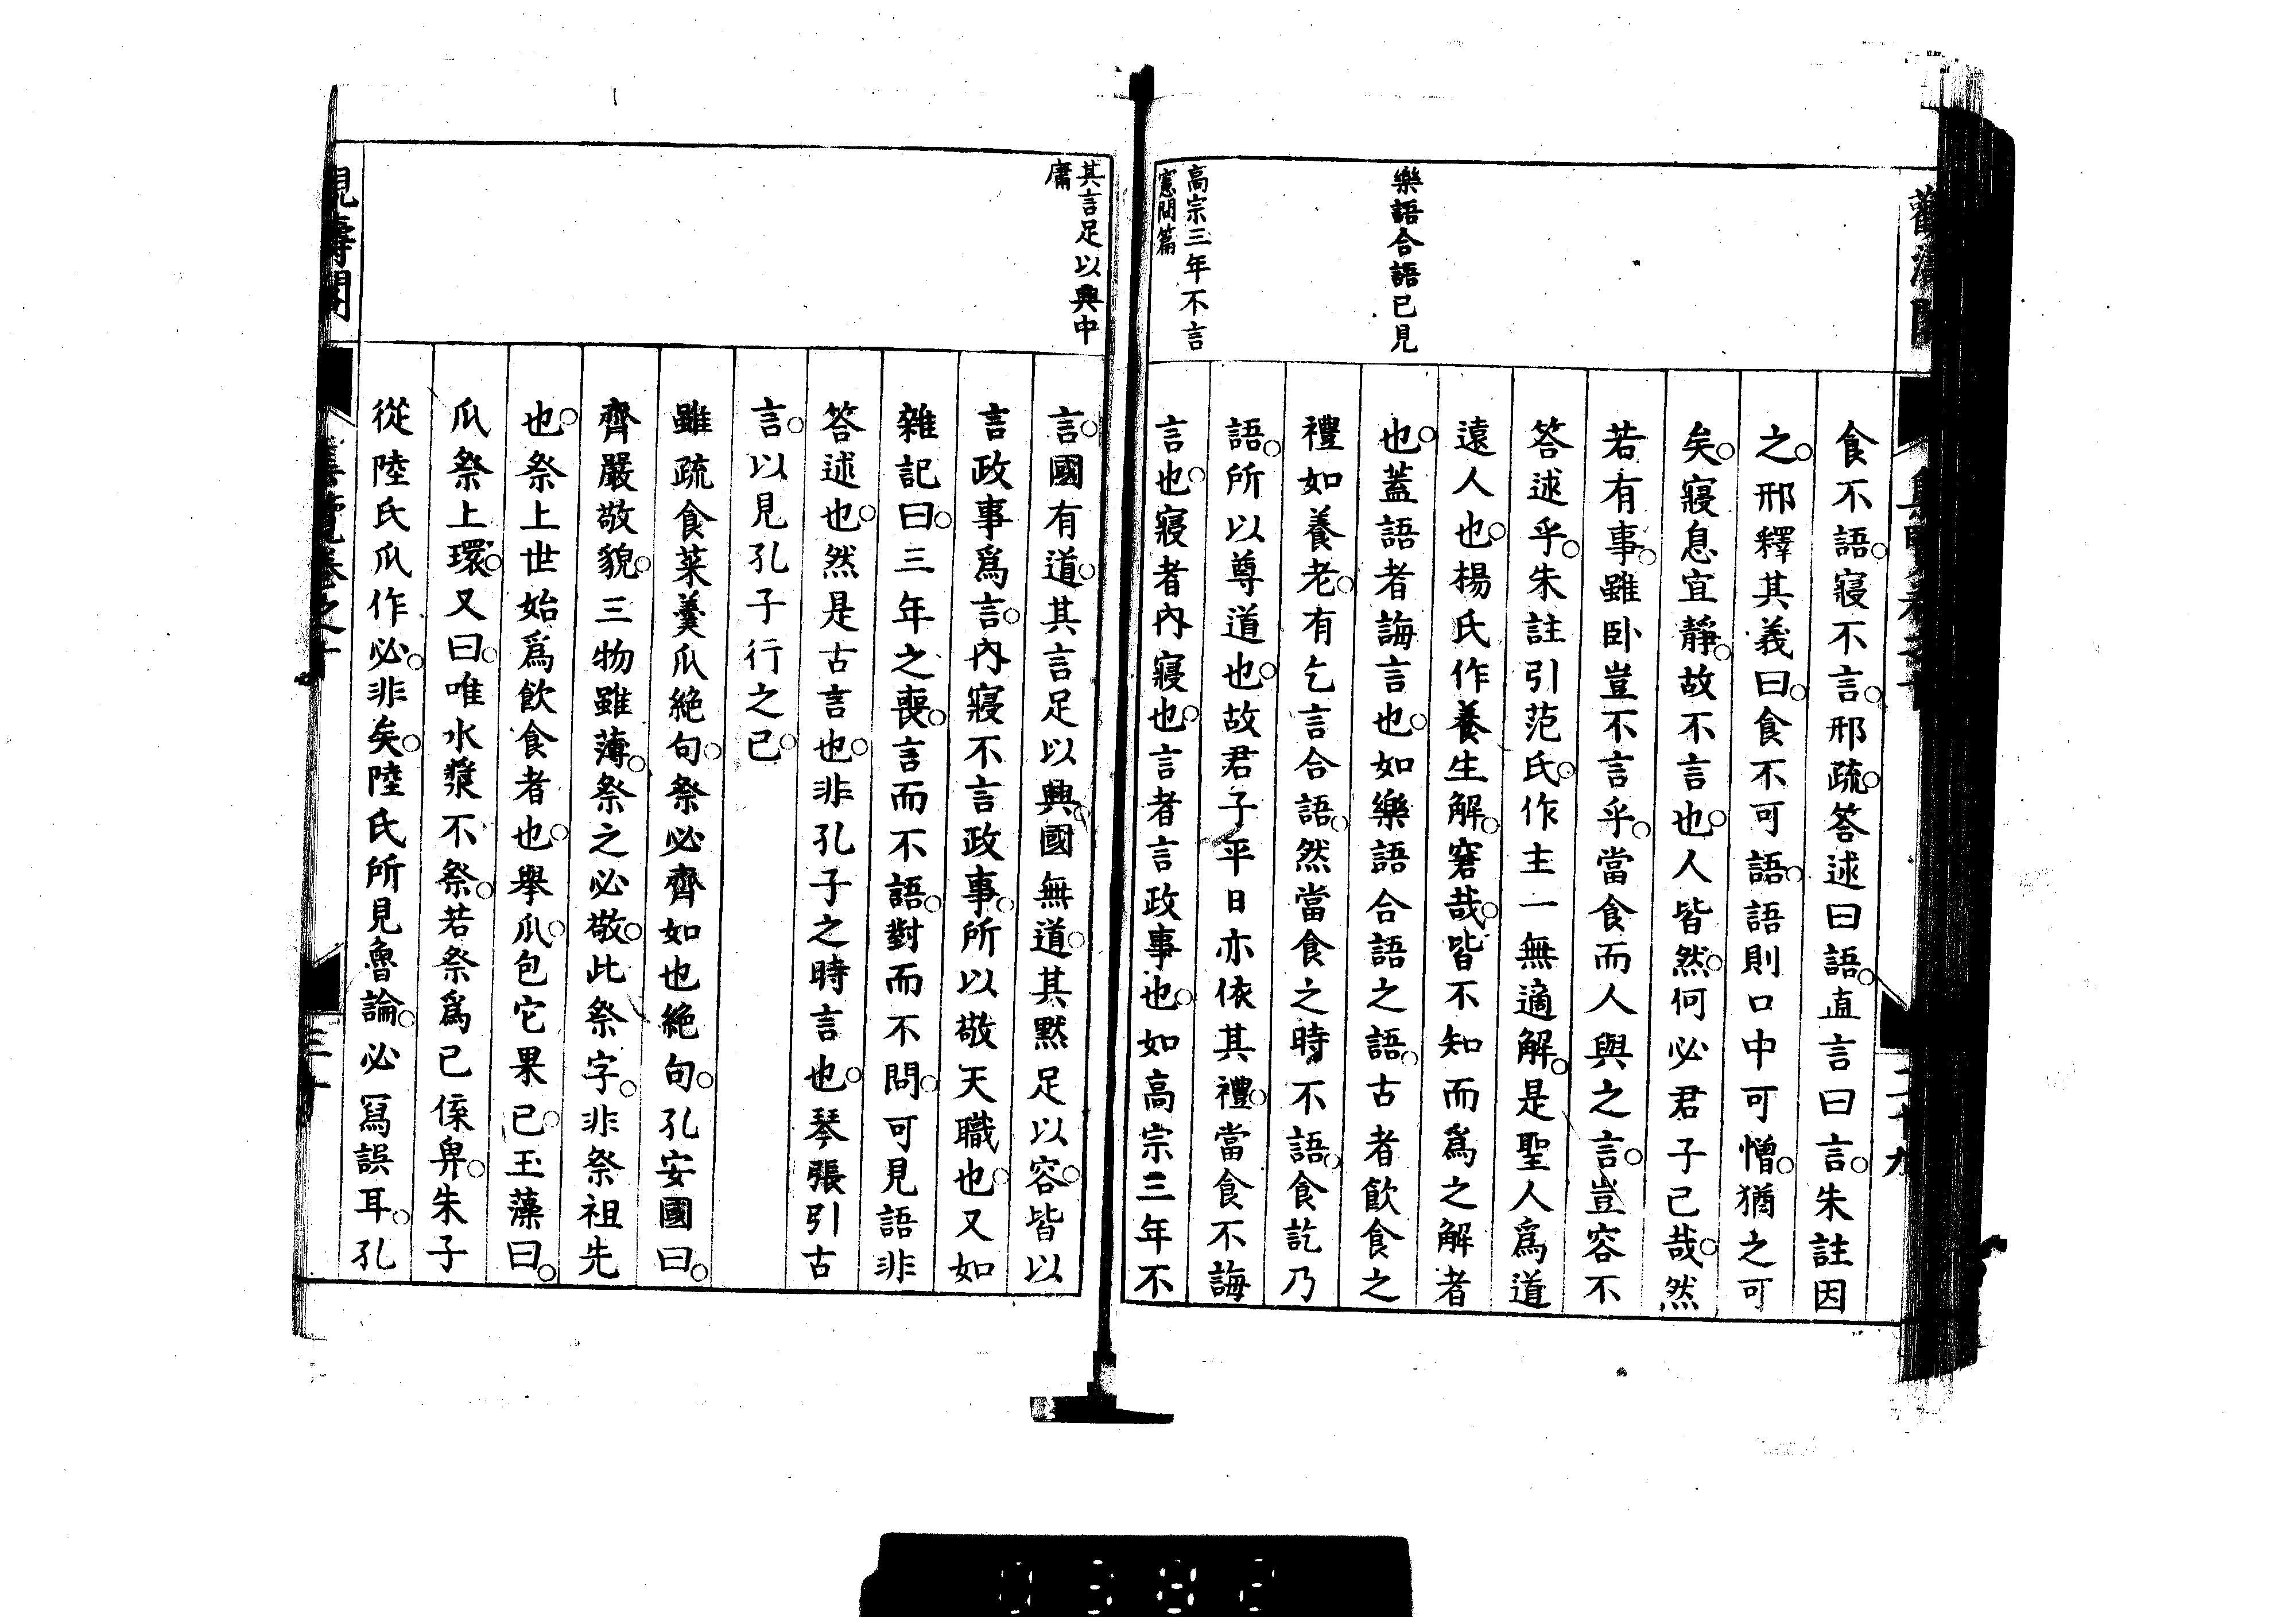 樂語合語已見
高宗三年不言
憲問篇
食不語。寢不言。邢疏。答述曰語。直言曰言。朱註因
之。邢釋其義曰。食不可語。語則口中可憎。猶之可
矣。寢息宜靜。故不言也。人皆然。何必君子已哉。然
若有事。雖臥豈不言乎。當食而人與之言。豈容不
答述乎。朱註引范氏。作主一無適解。是聖人爲道
遠人也。楊氏作養生解。窘哉。皆不知而爲之解者
也。蓋語者誨言也。如樂語合語之語。古者飲食之
禮如養老。有乞言合語。然當食之時不語。食訖乃
語。所以尊道也。故君子平日亦依其禮。當食不誨
言也。寢者內寢也。言者言政事也。如高宗三年不
二十九
其言足以興中
庸
言。國有道。其言足以興。國無道。其默足以容。皆以
言政事爲言。內寢不言政事。所以敬天職也。又如
雜記曰。三年之喪。言而不語。對而不問。可見語非
答述也。然是古言也。非孔子之時言也。琴張引古
言。以見孔子行之已。
雖疏食菜羹瓜絕句。祭必齊如也絕句。孔安國曰。
齊嚴敬貌。三物雖薄。祭之必敬。此祭字。非祭祖先
也。祭上世始爲飲食者也。擧瓜。包它果已。玉藻曰。
瓜祭上環。又曰。唯水漿不祭。若祭爲已傺卑。朱子
從陸氏瓜作必。非矣。陸氏所見魯論。必寫誤耳。孔
三十